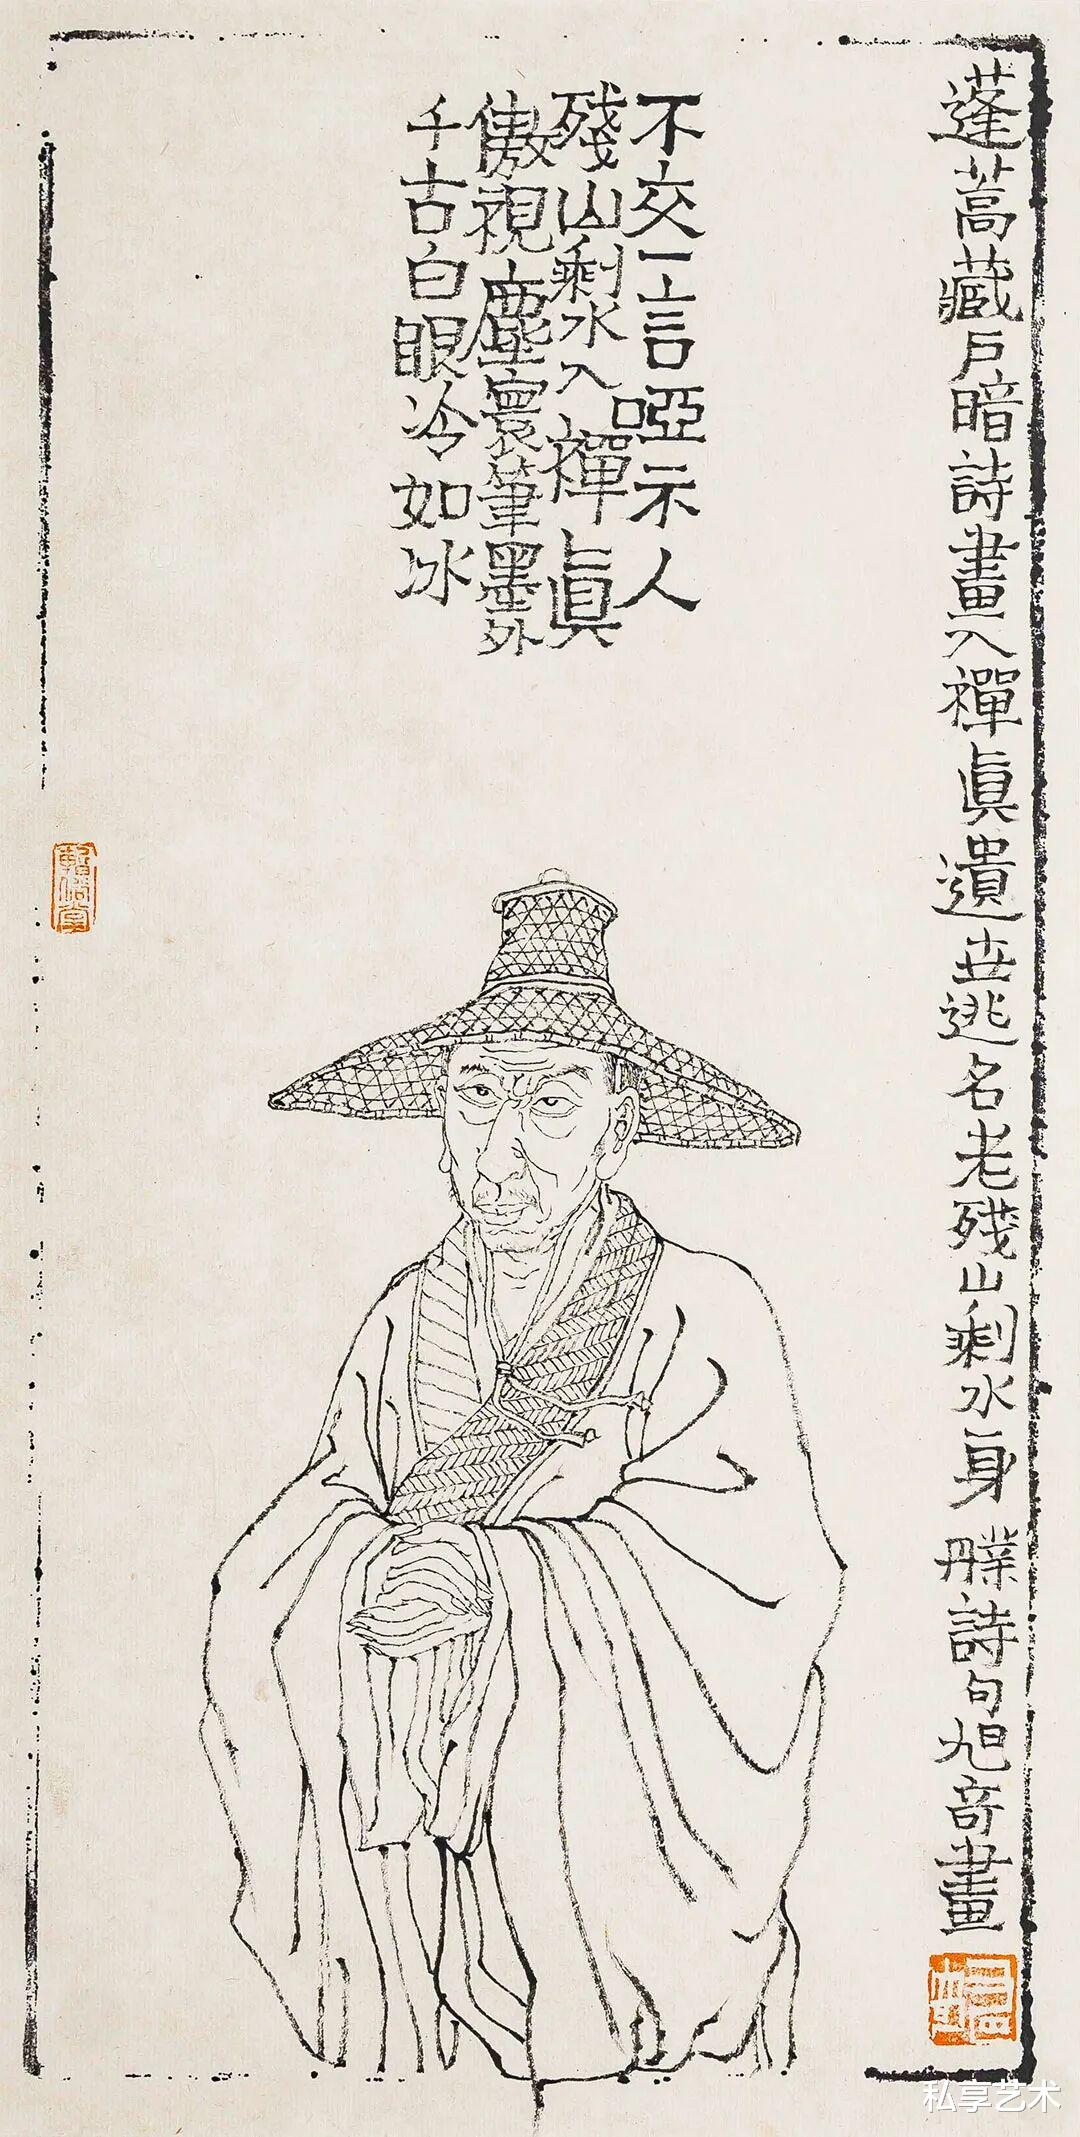 蓬蒿藏戶暗詩畫入禪眞遺世逃名老殘山剩水身 詩句旭奇畫
不交一言啞示人
殘山剩水入禪眞
傲視塵寰筆墨外
千古白眼冷如冰
私享艺术